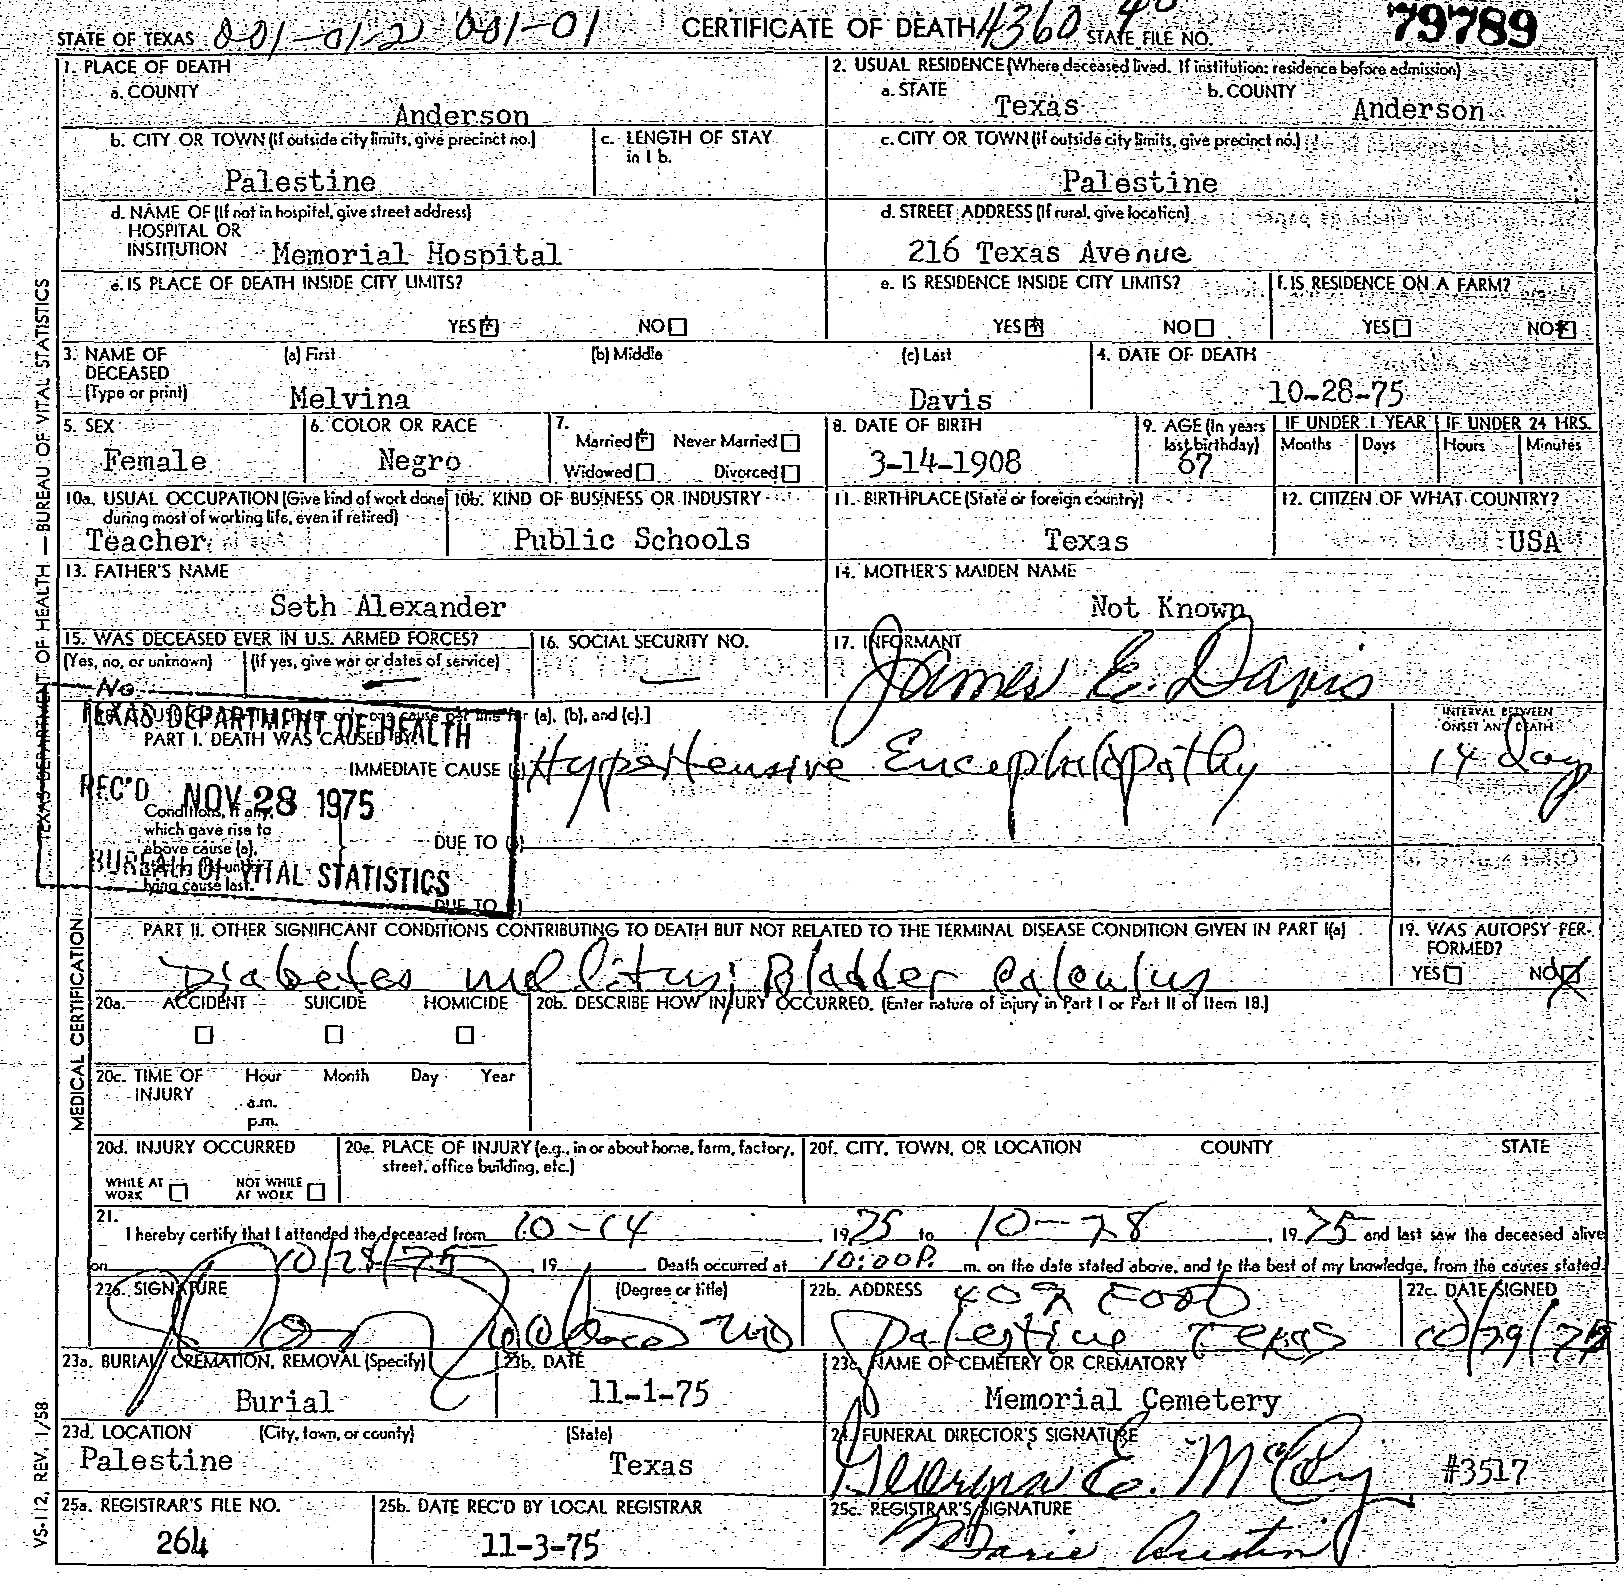 STATE OF TEXAS 001-01-2 001-01 CERTIFICATE OF DEATH 4360 40 STATE FILE NO. 79789
1. PLACE OF DEATH
a. COUNTY
Anderson
2. USUAL RESIDENCE (Where deceased lived. If institution: residence before admission)
a. STATE Texas b. COUNTY Anderson
b. CITY OR TOWN (If outside city limits, give precinct no.)
Palestine
c. LENGTH OF STAY
in 1 b.
c. CITY OR TOWN (If outside city limits, give precinct no.)
Palestine
d. NAME OF (If not in hospital, give street address)
HOSPITAL OR
INSTITUTION Memorial Hospital
d. STREET ADDRESS (If rural, give location)
216 Texas Avenue
e. IS PLACE OF DEATH INSIDE CITY LIMITS?
YES NO
e. IS RESIDENCE INSIDE CITY LIMITS?
YES NO
f. IS RESIDENCE ON A FARM?
YES NO
3. NAME OF (a) First (b) Middle (c) Last
DECEASED
(Type or print) Melvina Davis
4. DATE OF DEATH
10-28-75
5. SEX
Female
6. COLOR OR RACE
Negro
7.
Married Never Married
Widowed Divorced
8. DATE OF BIRTH
3-14-1908
9. AGE (In years
last birthday)
67
IF UNDER 1 YEAR
Months Days
IF UNDER 24 HRS.
Hours Minutes
10a. USUAL OCCUPATION (Give kind of work done
during most of working life, even if retired)
Teacher
10b. KIND OF BUSINESS OR INDUSTRY
Public Schools
11. BIRTHPLACE (State or foreign country)
Texas
12. CITIZEN OF WHAT COUNTRY?
USA
13. FATHER'S NAME
Seth Alexander
14. MOTHER'S MAIDEN NAME
Not Known
15. WAS DECEASED EVER IN U.S. ARMED FORCES?
(Yes, no, or unknown) (If yes, give war or dates of service)
No —
16. SOCIAL SECURITY NO.
—
17. INFORMANT
James E. Davis
TEXAS DEPARTMENT OF HEALTH
REC'D NOV 28 1975
BUREAU OF VITAL STATISTICS
cause per line for (a), (b), and (c).]
PART I. DEATH WAS CAUSED BY:
IMMEDIATE CAUSE (a) Hypertensive Encephilopathy
INTERVAL BETWEEN
ONSET AND DEATH
14 day
Conditions, if any,
which gave rise to
above cause (a),
lying cause last.
DUE TO
DUE TO
PART II. OTHER SIGNIFICANT CONDITIONS CONTRIBUTING TO DEATH BUT NOT RELATED TO THE TERMINAL DISEASE CONDITION GIVEN IN PART I(a)
Diabetes mellitus; Bladder calculus
19. WAS AUTOPSY PER-
FORMED?
YES NO
20a. ACCIDENT SUICIDE HOMICIDE
20b. DESCRIBE HOW INJURY OCCURRED. (Enter nature of injury in Part I or Part II of Item 18.)
20c. TIME OF Hour Month Day Year
INJURY
a.m.
p.m.
20d. INJURY OCCURRED
WHILE AT
WORK
NOT WHILE
AT WORK
20e. PLACE OF INJURY (e.g., in or about home, farm, factory,
street, office building, etc.)
20f. CITY, TOWN, OR LOCATION COUNTY STATE
21.
I hereby certify that I attended the deceased from 10-14, 1975 to 10-28, 1975 and last saw the deceased alive
on 10/28/75, 19 Death occurred at 10:00P. m. on the date stated above, and to the best of my knowledge, from the causes stated.
22a. SIGNATURE (Degree or title)
MD
22b. ADDRESS
Palestine Texas
22c. DATE SIGNED
10/29/75
23a. BURIAL, CREMATION, REMOVAL (Specify)
Burial
23b. DATE
11-1-75
23c. NAME OF CEMETERY OR CREMATORY
Memorial Cemetery
23d. LOCATION (City, town, or county) (State)
Palestine Texas
24. FUNERAL DIRECTOR'S SIGNATURE
E. McCoy #3517
25a. REGISTRAR'S FILE NO.
264
25b. DATE REC'D BY LOCAL REGISTRAR
11-3-75
25c. REGISTRAR'S SIGNATURE
Marie Austin
TEXAS DEPARTMENT OF HEALTH — BUREAU OF VITAL STATISTICS
MEDICAL CERTIFICATION
VS-112, REV. 1/58